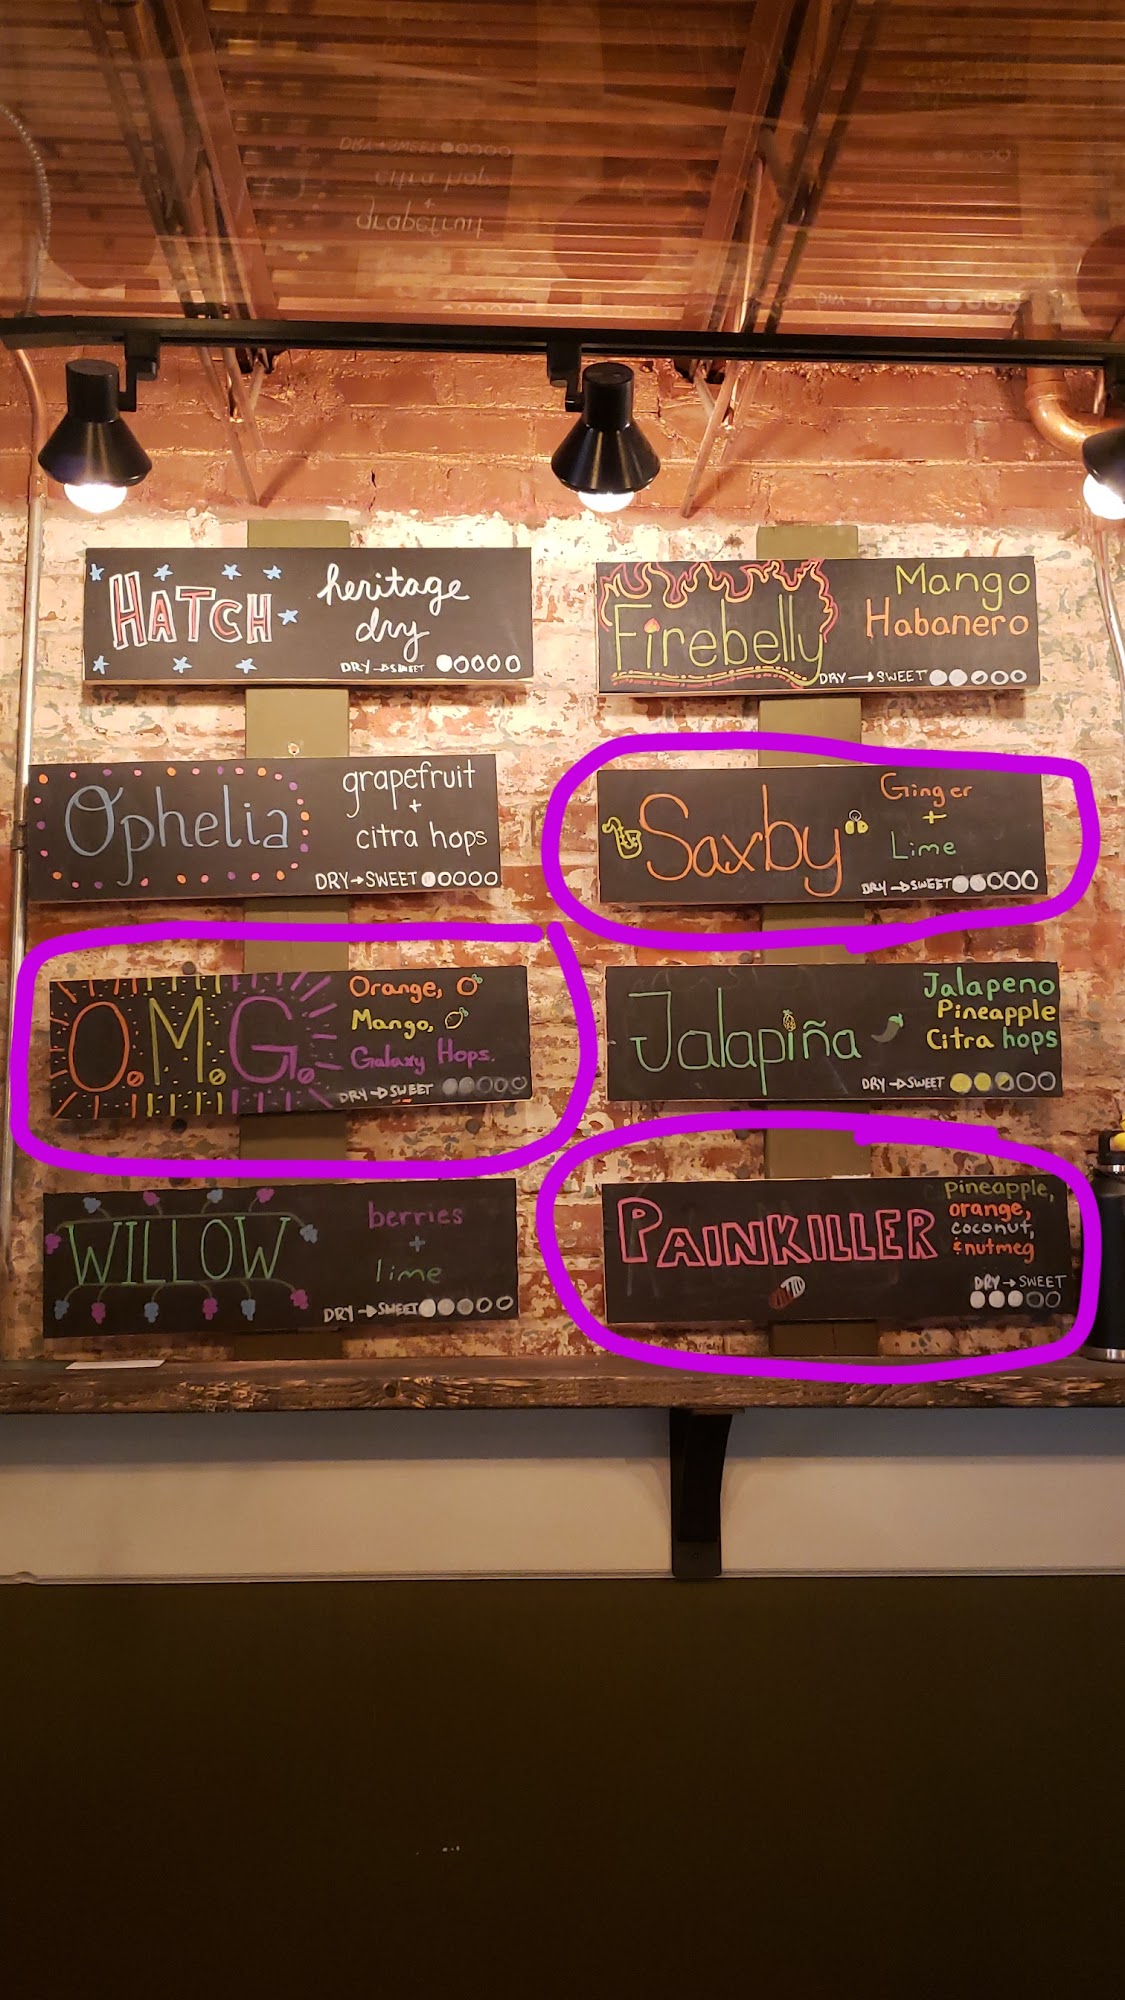 HATCH
heritage
dry
DRY → SWEET
Firebelly
Mango
Habanero
DRY → SWEET
Ophelia
grapefruit
+
citra hops
DRY → SWEET
Saxby
Ginger
+
Lime
DRY → SWEET
O.M.G.
Orange,
Mango,
Galaxy Hops.
DRY → SWEET
Jalapiña
Jalapeno
Pineapple
Citra hops
DRY → SWEET
WILLOW
berries
+
lime
DRY → SWEET
PAINKILLER
pineapple,
orange,
coconut,
& nutmeg
DRY → SWEET